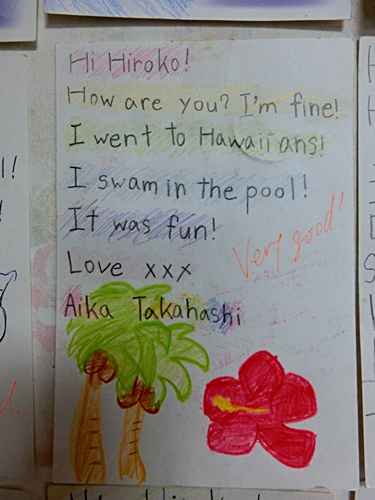 Hi Hiroko!
How are you? I'm fine!
I went to Hawaiians!
I swam in the pool!
It was fun!
Very good!
Love xxx
Aika Takahashi